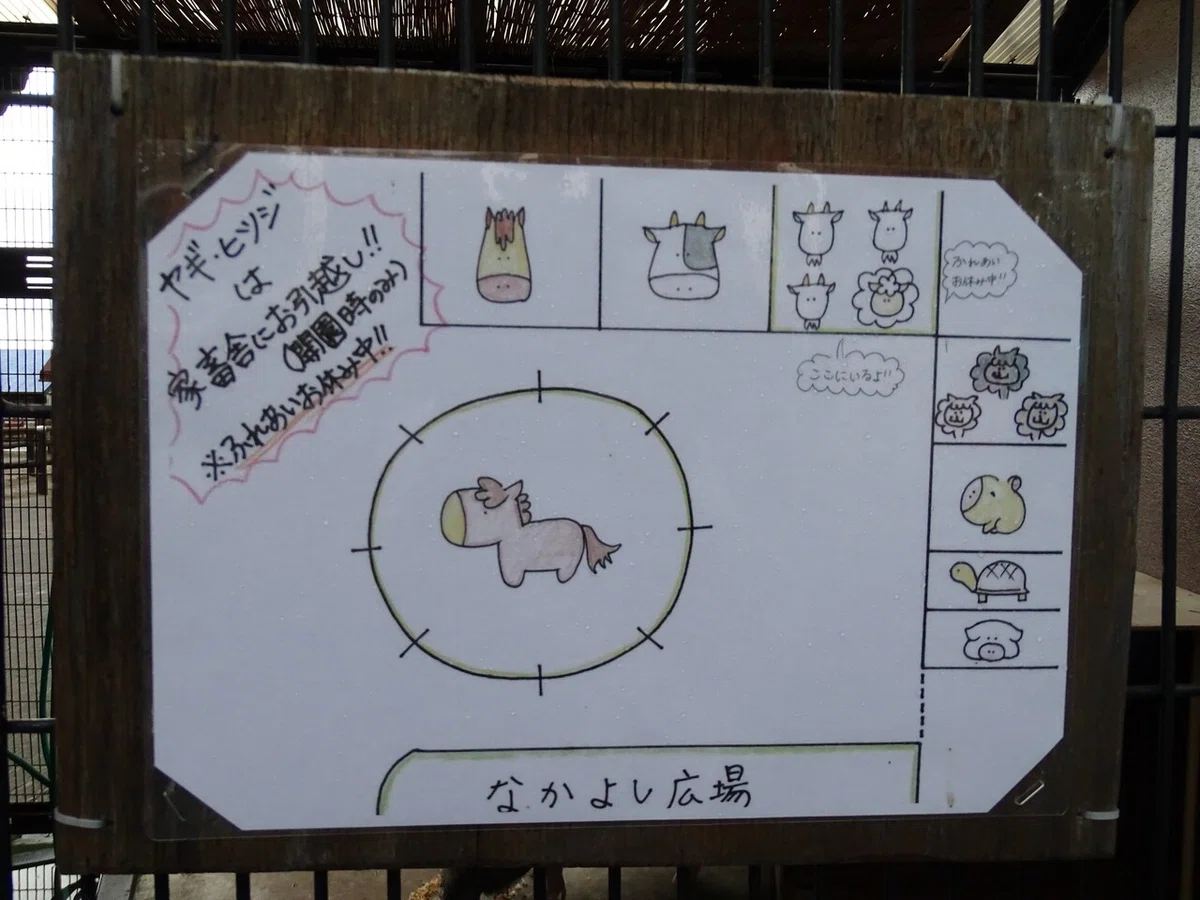 ヤギ・ヒツジ
は
家畜舎にお引越し!!
(開園時のみ)
※ふれあいお休み中!!
ふれあい
お休み中!!
ここにいるよ!!
なかよし広場